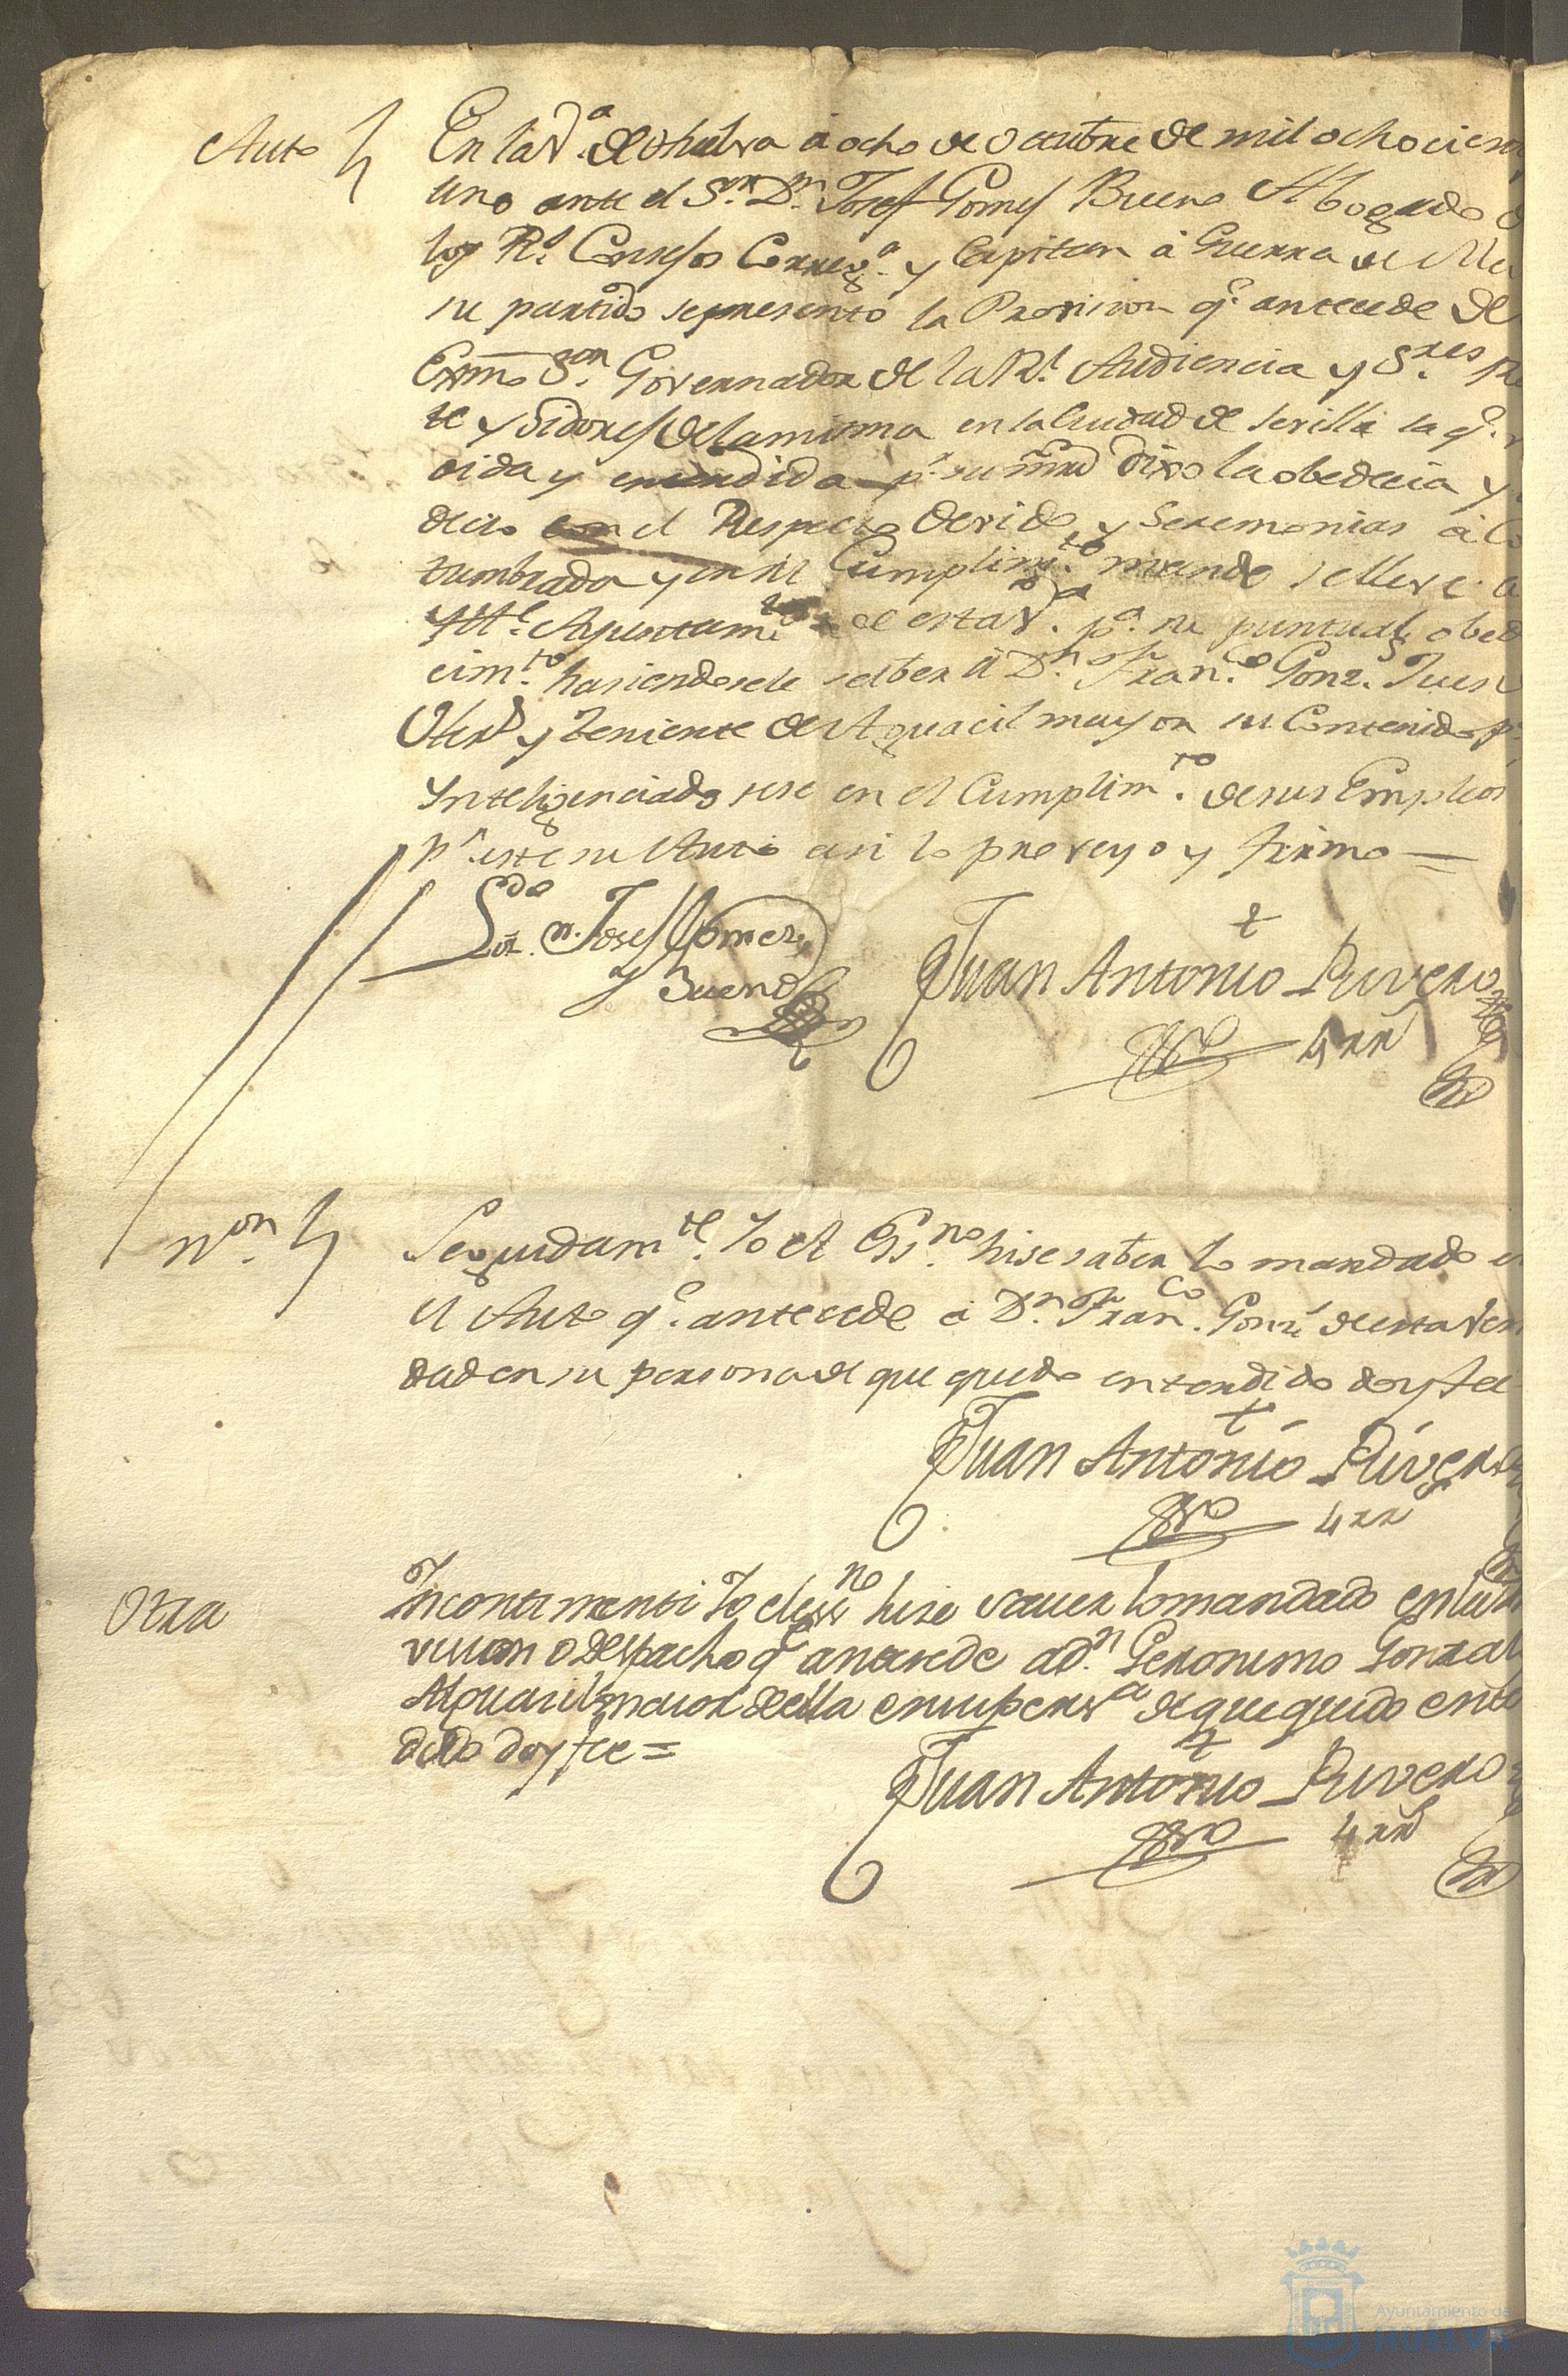 Auto En la V.ª de Huelva à ocho de Octubre de mil ochocien
uno ante el S.or D.n Josef Gomes Bueno Abogado
los R.s Consejos Correg.r y Capitan à Guerra de
su partido se presento la Provision q.e antecede del
Exmo S.or Governador de la R.l Audiencia y S.res
te y Oidores de la misma en la Ciudad de Sevilla la q.e
oida y entendida p.r su mrd dixo la obedecia y
decio con el Respecto devido y Seremonias à Co
tumbrada y en su Cumplim.to mando se lleve a
Ill.e Ayuntam.to de esta V.ª p.ª su puntual obed
cim.to hasiendosele saber à D.n Fran.co Gonz.s Jues
y Teniente de Aguacil mayor su Contenido p.ª
Ynteligenciado sese en el Cumplim.to de sus Empleos
p.r este su Auto asi lo proveyo y firmo =
Ldo Dn. Josef Gomez
y Bueno
Juan Antonio Rivero
4 rr
n.on Seguidam.te Yo el Ess.no hise saber lo mandado en
el Auto q.e antecede à D.n Fran.co Gonz.s de esta Vecin
dad en su persona de que quedo entendido doy fee
Juan Antonio Rivero
4 rr
Otra Incontinenti Yo el ess.no hise saver lo mandado en la
vision o despacho q.e antesede a d.n Geronimo Gonzal
Alguacil maior de ella en su pers.a de que quedo enten
dido doy fee =
Juan Antonio Rivero
4 rr
Ayuntamiento de
HUELVA